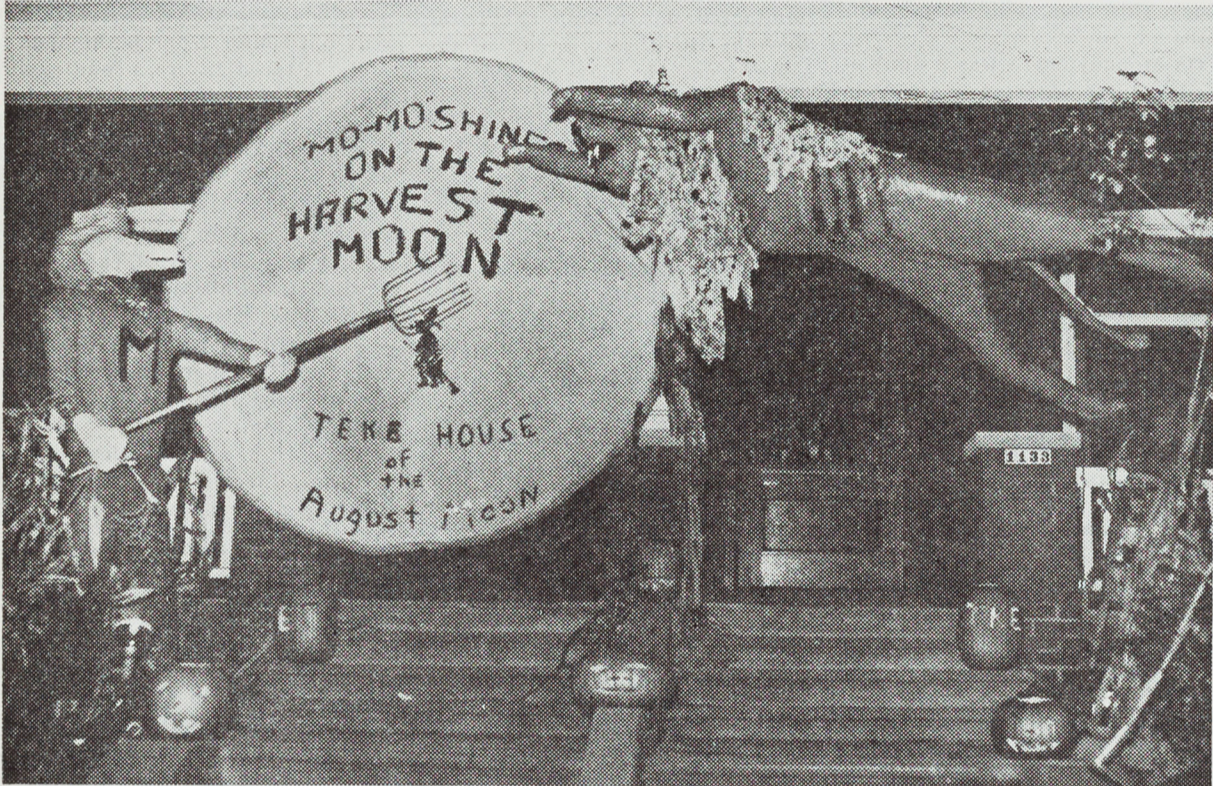 "MO-MO" SHINE
ON THE
HARVEST
MOON
M
TEKE HOUSE
OF
THE
August MOON
1133
TKE